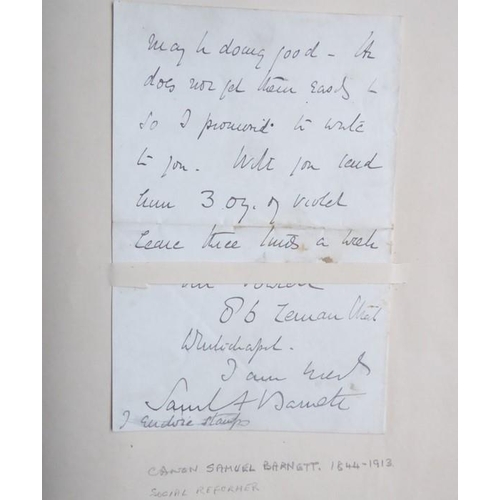 may be doing good - He
does not get them easily &
so I promised to write
to you. Will you send
him 3 oz. of violet
leave three times a week
86 Leman Street
Whitechapel.
I am
Saml A Barnett
I enclose stamps
CANON SAMUEL BARNETT. 1844-1913
SOCIAL REFORMER